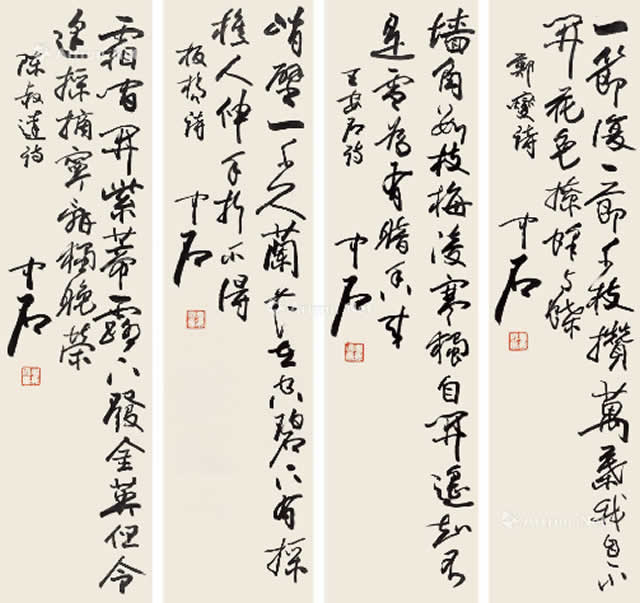 一節復一節千枝攢萬葉我自不
開花免撩蜂与蝶
鄭燮詩
中石
墙角数枝梅凌寒獨自開遥知不
是雪為有暗香来
王安石詩
中石
峭壁一千尺蘭花在空碧下有採
樵人伸手折不得
板橋詩
中石
霜間開紫蒂露下發金英但令
逢採摘寧辭獨晚榮
陳叔達詩
中石